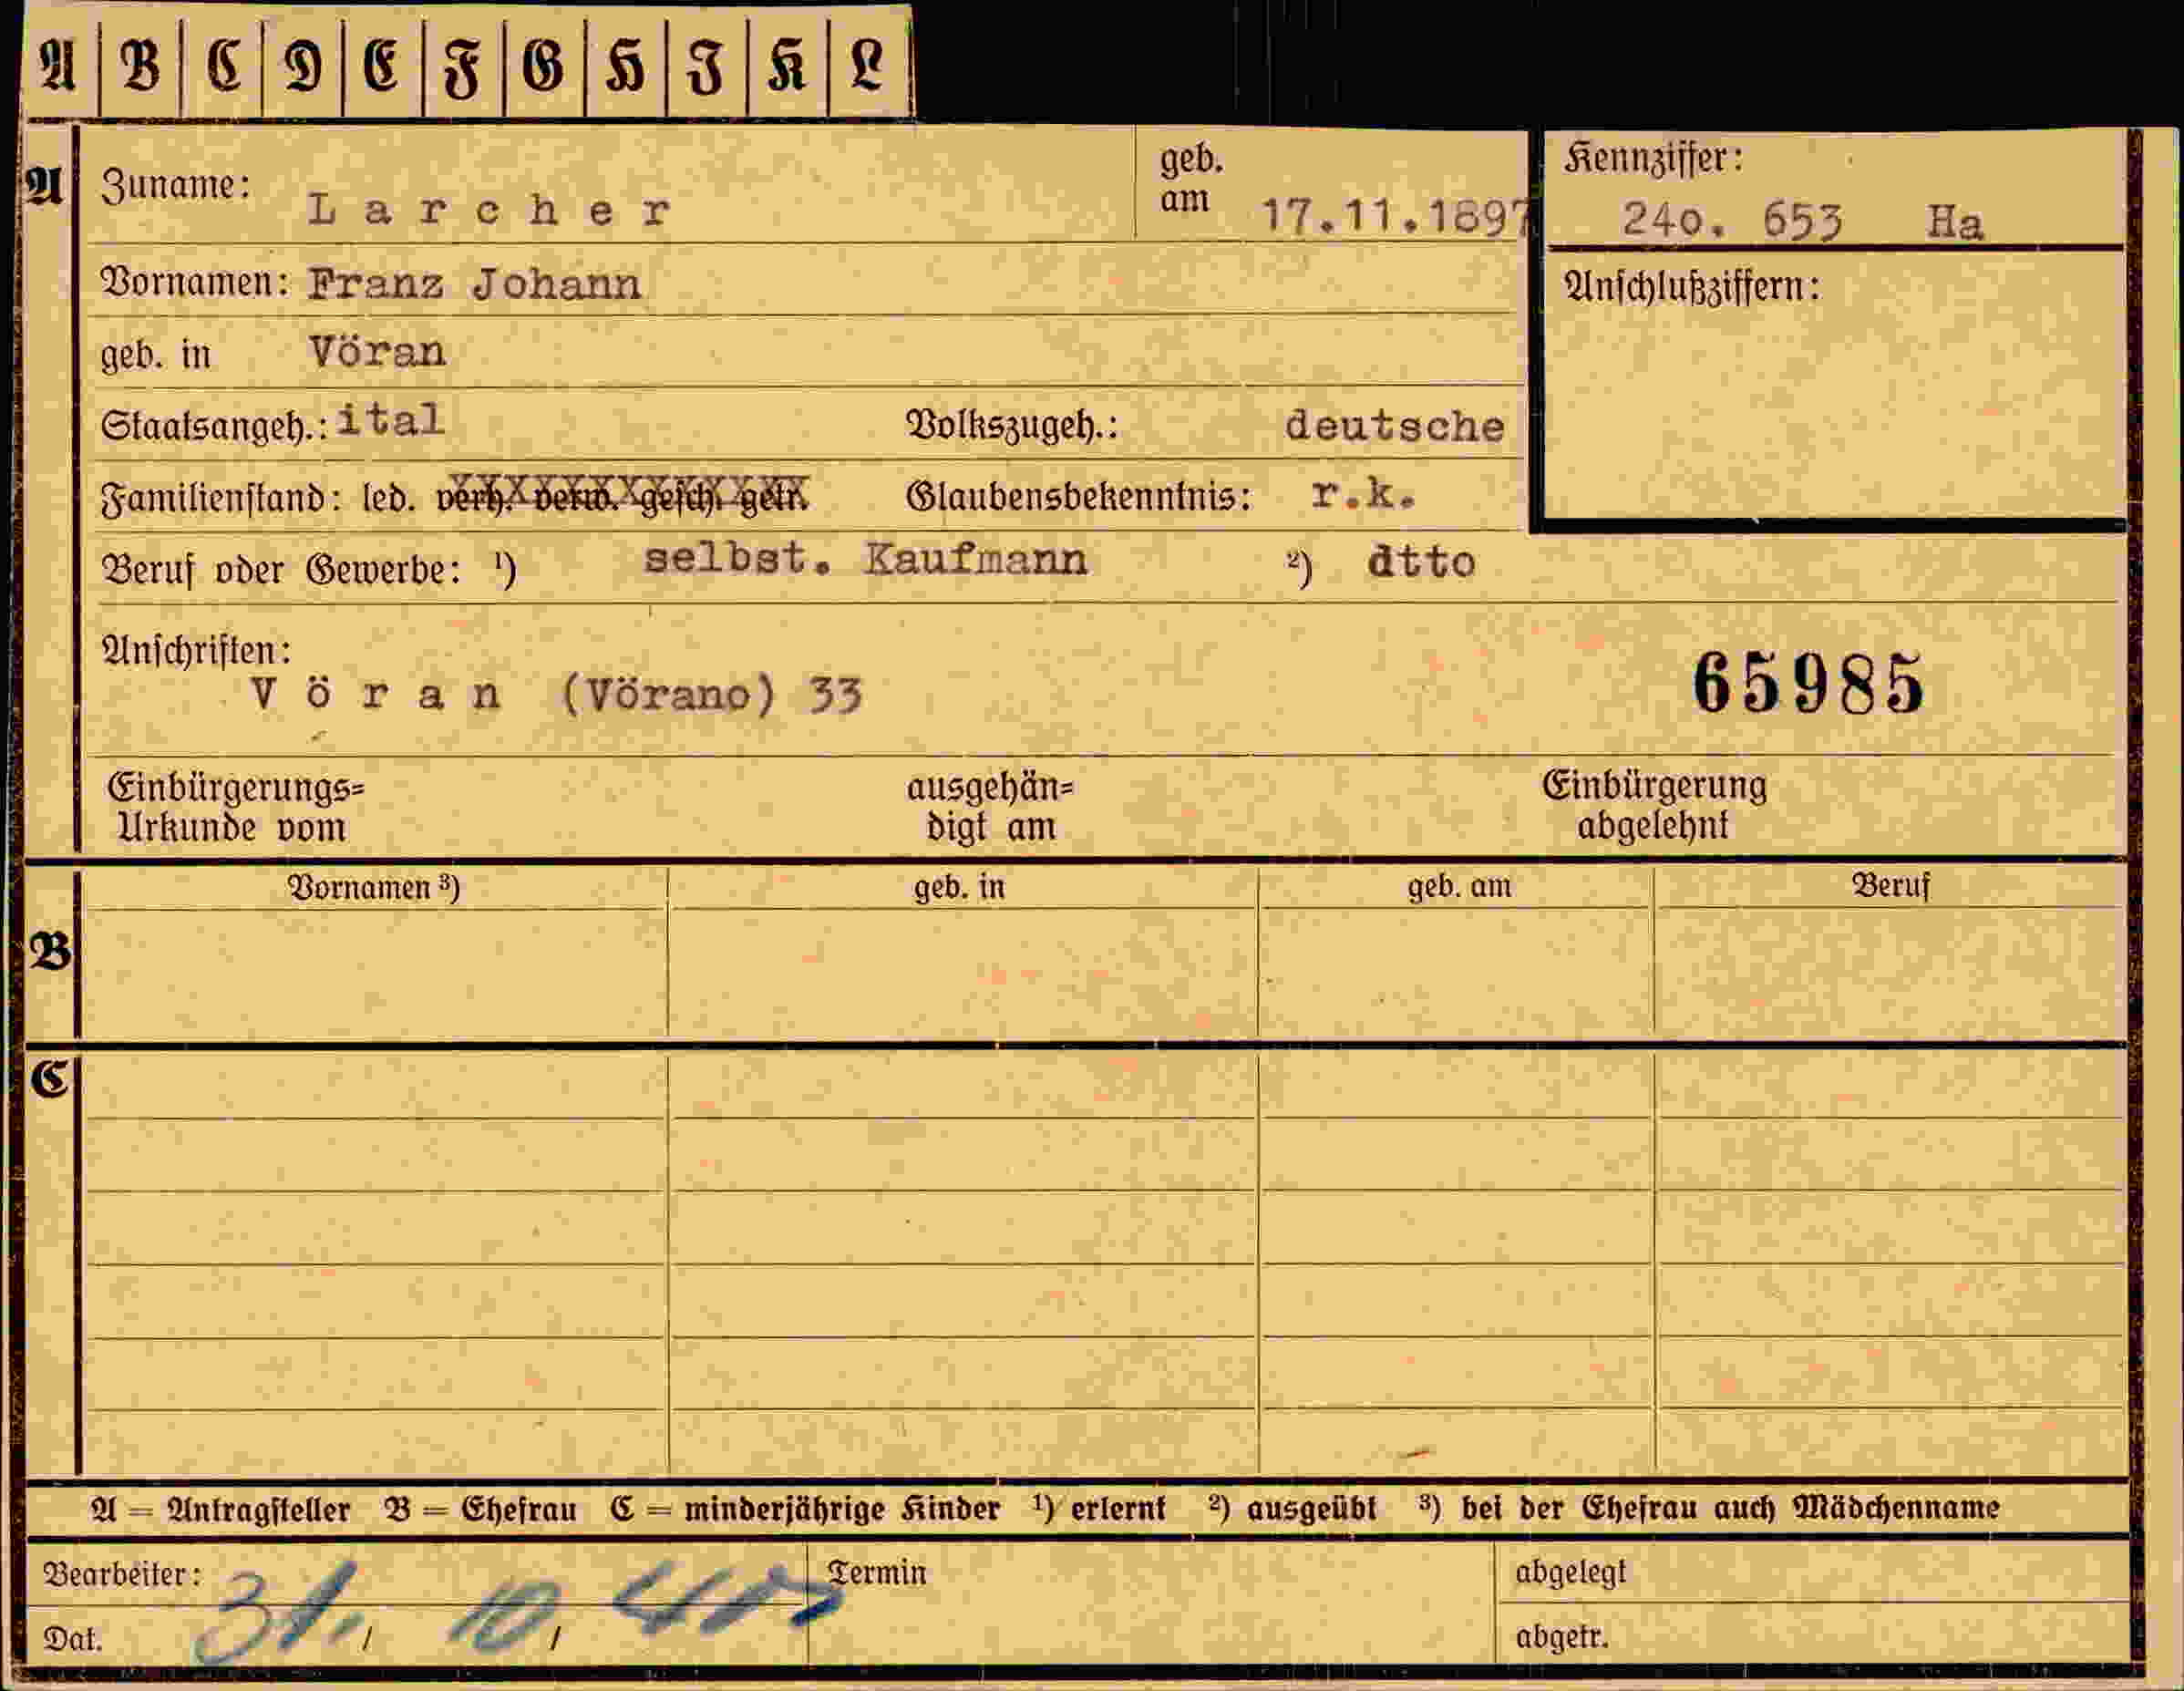 A B C D E F G H I K L
A Zuname: Larcher geb. am 17.11.1897 Kennziffer: 24o. 653 Ha
Vornamen: Franz Johann Anschlußziffern:
geb. in Vöran
Staatsangeh.: ital Volkszugeh.: deutsche
Familienstand: led. verh. verw. gesch. getr. Glaubensbekenntnis: r.k.
Beruf oder Gewerbe: ¹) selbst. Kaufmann ²) dtto
Anschriften:
Vöran (Vörano) 33 65985
Einbürgerungs= Urkunde vom ausgehän= digt am Einbürgerung abgelehnt
Vornamen ³) geb. in geb. am Beruf
B
C
A = Antragsteller B = Ehefrau C = minderjährige Kinder ¹) erlernt ²) ausgeübt ³) bei der Ehefrau auch Mädchenname
Bearbeiter: Termin abgelegt
Dat. 31. 10. abgetr.